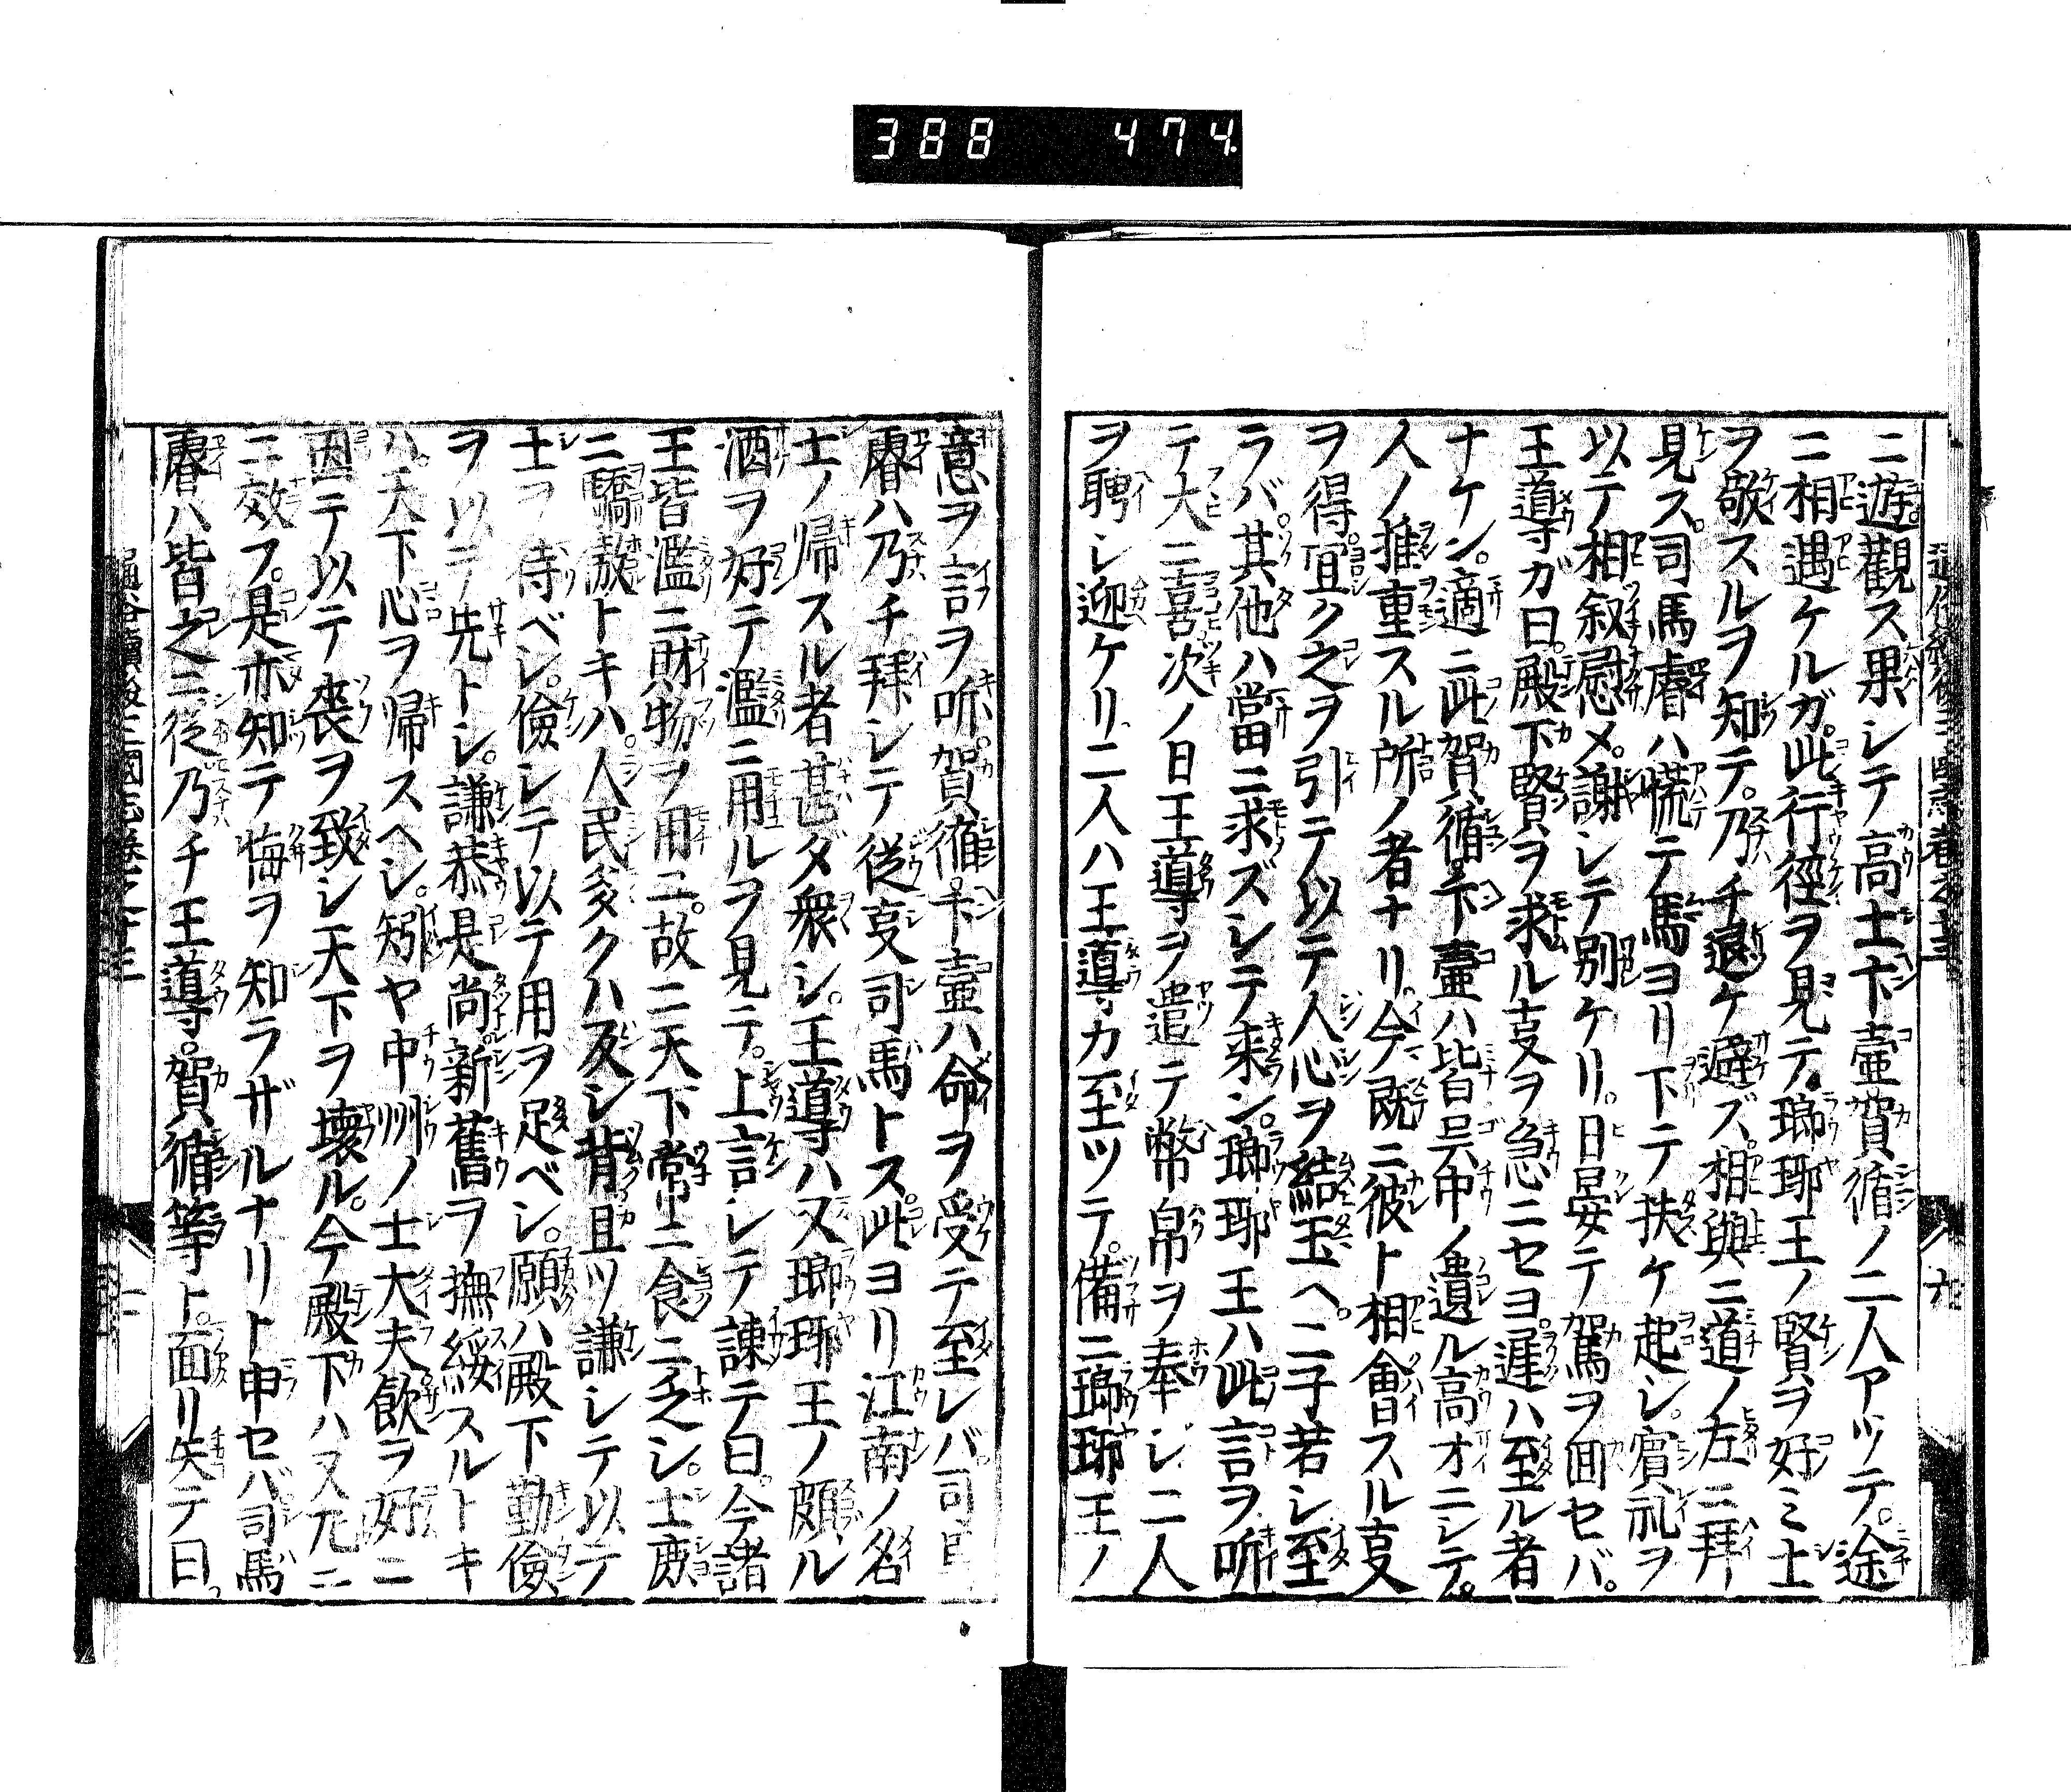 388 474.
ニ遊觀ス果レテ高士卞壷賀循ノ二人アツテ。途
ニ相遇ケルガ。此行徑ヲ見テ。瑯琊王ノ賢ヲ好ミ士
ヲ敬スルヲ知テ。乃チ退ケ避ズ。相與ニ道ノ左ニ拜
見ス。司馬睿ハ慌テ馬ヨリ下テ扶ケ起シ。賓礼ヲ
以テ相叙慰メ。謝シテ別ケリ。日晏テ駕ヲ囬セバ。
王導ガ曰。殿下賢ヲ求ル㕝ヲ急ニセヨ。遅ハ至ル者
ナケン。適ニ此賀循。卞壷ハ皆呉中ノ遺ル高才ニシテ。
人ノ推重スル所ノ者ナリ。今既ニ彼ト相會スル㕝
ヲ得。宜ク之ヲ引テ以テ人心ヲ結玉ヘ。二子若シ至
ラバ。其他ハ當ニ求ズシテ来ン。瑯琊王ハ此言ヲ听
テ大ニ喜次ノ日王導ヲ遣テ幣帛ヲ奉シ二人
ヲ聘シ迎ケリ二人ハ王導カ至ツテ。備ニ瑯琊王ノ
意ヲ言ヲ听。賀循。卞壷ハ命ヲ受テ至レバ。司馬
睿ハ乃チ拜シテ従㕝司馬トス此ヨリ江南ノ名
士ノ帰スル者甚ダ衆シ。王導ハ又瑯琊王ノ頗ル
酒ヲ好テ濫ニ用ルヲ見テ。上言シテ諌テ曰。今諸
王皆濫ニ財物ヲ用ユ。故ニ天下常ニ食ニ乏シ。士庶
ニ驕敖トキハ。人民多クハ反シ背且ツ謙シテ以テ
士ヲ待ベシ。儉シテ以テ用ヲ足ベシ。願ハ殿下勤儉
ヲ以テ先トシ。謙恭是尚。新舊ヲ撫綏スルトキ
ハ。天下心ヲ帰スヘシ。矧ヤ中州ノ士大夫飲ヲ好ニ
因テ以テ喪ヲ致シ天下ヲ壊ル。今殿下ハ又尤ニ
ニ效フ。是亦知テ悔ヲ知ラザルナリト申セバ司馬
睿ハ皆之ニ從。乃チ王導。賀循等ト。面リ矢テ曰。